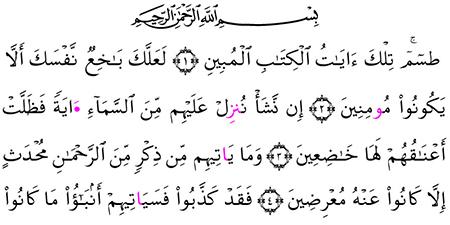 بِسْمِ ٱللَّهِ ٱلرَّحْمَٰنِ ٱلرَّحِيمِ
طسٓمٓۚ تِلْكَ ءَايَٰتُ ٱلْكِتَٰبِ ٱلْمُبِينِ ﴿١﴾ لَعَلَّكَ بَٰخِعٌ نَّفْسَكَ أَلَّا
يَكُونُوا۟ مُومِنِينَ ﴿٢﴾ إِن نَّشَأْ نُنزِلْ عَلَيْهِم مِّنَ ٱلسَّمَآءِ ءَايَةً فَظَلَّتْ
أَعْنَٰقُهُمْ لَهَا خَٰضِعِينَ ﴿٣﴾ وَمَا يَاتِيهِم مِّن ذِكْرٍ مِّنَ ٱلرَّحْمَٰنِ مُحْدَثٍ
إِلَّا كَانُوا۟ عَنْهُ مُعْرِضِينَ ﴿٤﴾ فَقَدْ كَذَّبُوا۟ فَسَيَاتِيهِمُ أَنۢبَٰٓؤُا۟ مَا كَانُوا۟